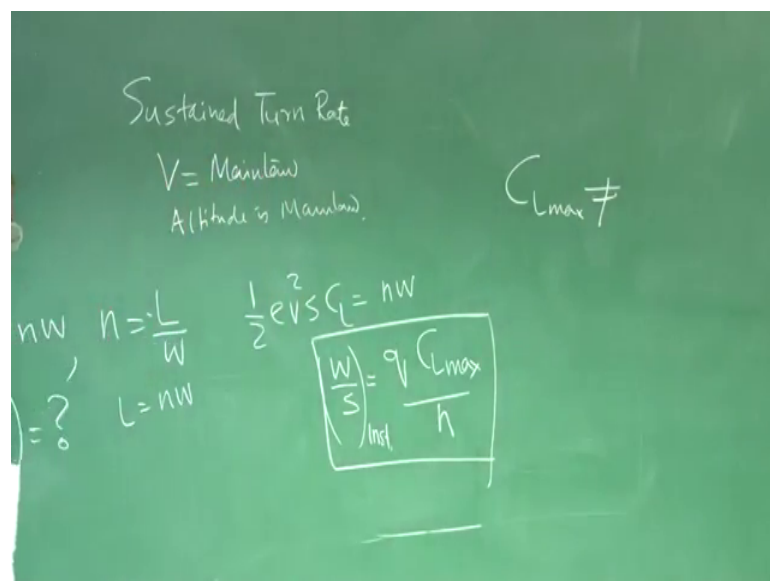 Sustained Turn Rate
V = Maintain
Altitude is Maintain.
C_Lmax ≠
nW n = L/W 1/2 ρv²SC_L = nW
) = ? L = nW
(W/S)_Inst = q C_Lmax / n